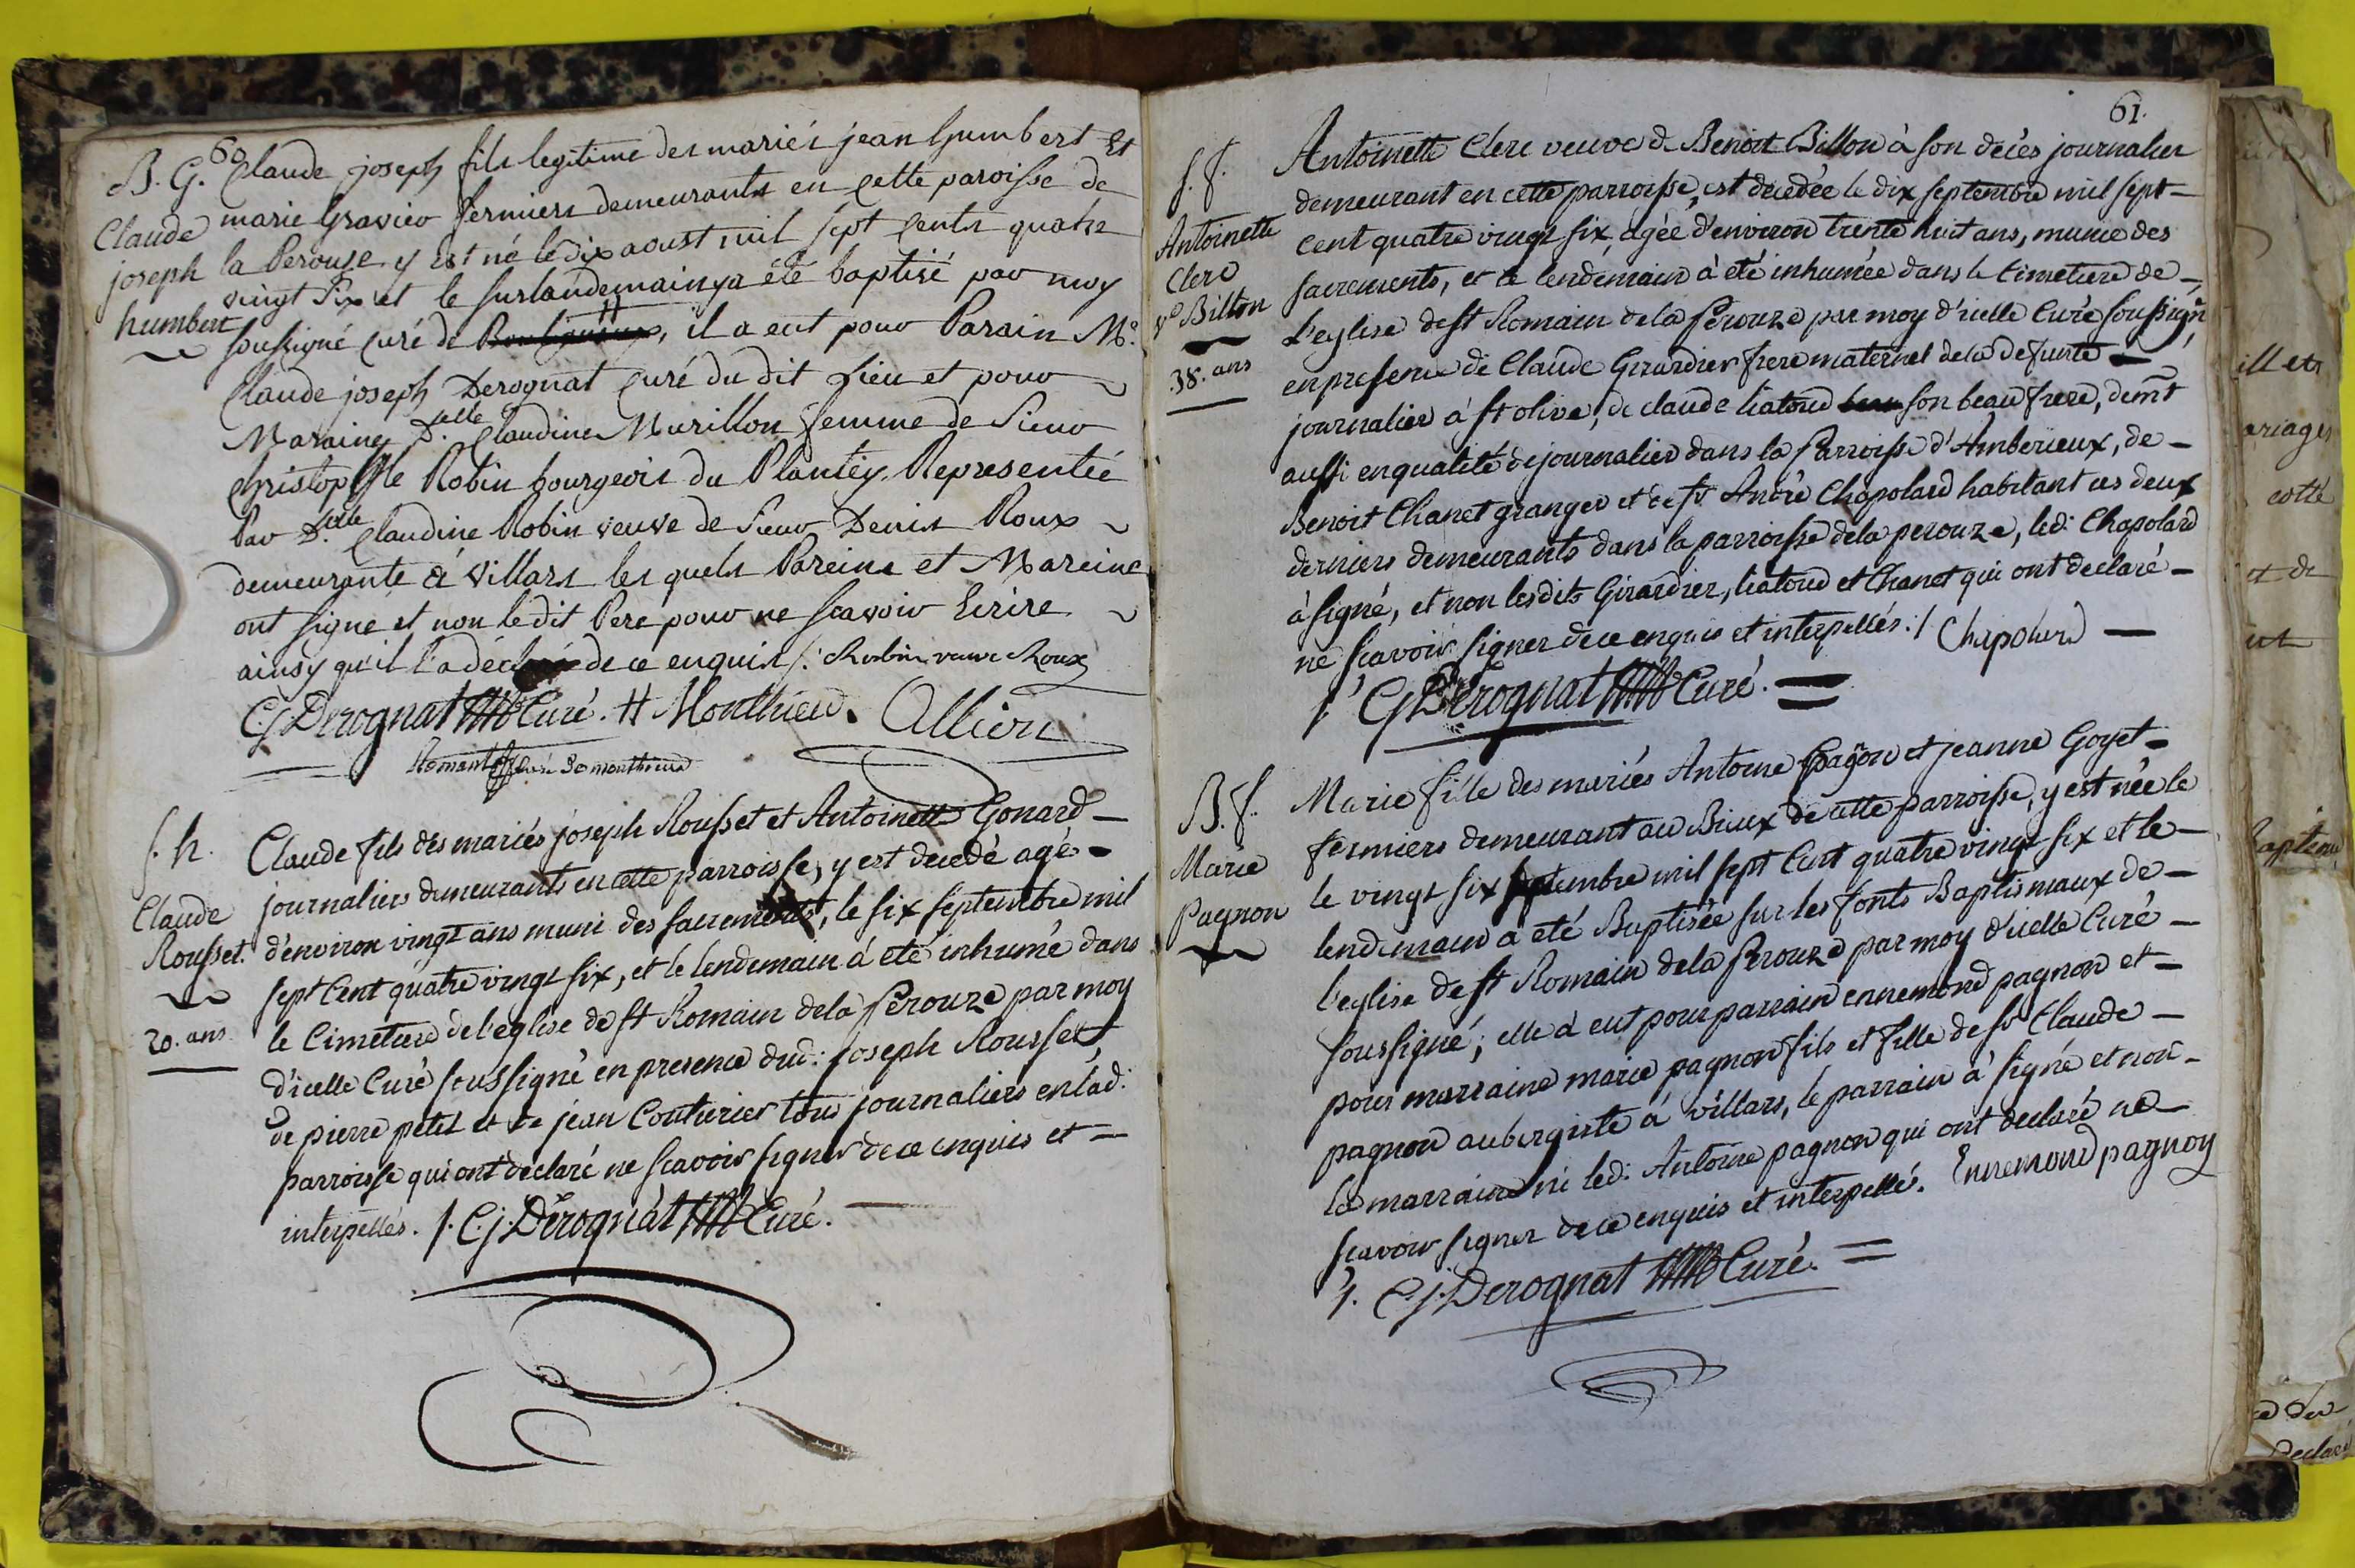 60
B. G.
Claude
joseph
humbert
Claude joseph fils legitime des mariés jean humbert Et
marie Gravier fermiers demeurants en cette paroisse de
la Perouze y est né le dix aoust mil sept cents quatre
vingt six et le surlandemain y a été baptisé par moy
soussigné curé de Bouligneux, il a eut pour Parain Mre
Claude joseph Derognat curé du dit Lieu et pour
Maraine Delle Claudine Murillon femme de Sieur
Christophle Robin bourgeois du Plantey Representée
Par Delle Claudine Robin veuve de Sieur Denis Roux
demeurante à Villars les quels Pareins et Mareine
ont signé et non le dit Pere pour ne scavoir Ecrire
ainsy qu'il l'a déclaré de ce enquis /. Robin veuve Roux
C.j. Derognat Curé. H Monthieu. Allion
Romant curé de monthieux
S. h.
Claude
Rousset.
20. ans
Claude fils des mariés joseph Rousset et Antoinette Gonard
journaliers demeurants en cette parroisse, y est decedé agé
d'environ vingt ans muni des sacrements, le six septembre mil
sept Cent quatre vingt six, et le lendemain à eté inhumé dans
le Cimetiere de l'eglise de st Romain de la Perouze par moy
d'icelle Curé soussigné en presence dud: joseph Rousset,
de pierre petit et de jean Couturier tous journaliers en lad:
parroisse qui ont declaré ne scavoir signer de ce enquis et
interpellés. /. C.j. Derognat Curé.
61.
S. f.
Antoinette
Clerc
ve Billon
38. ans
Antoinette Clerc veuve de Benoit Billon à son décés journalier
demeurant en cette parroisse, est decedée le dix septembre mil sept
cent quatre vingt six, agée d'environ trente huit ans, munie des
sacrements, et le lendemain à eté inhumée dans le Cimetiere de
L'eglise de st Romain de la Perouze par moy d'icelle Curé soussigné,
en presence de Claude Girardier frere maternel de la defunte
journalier à st olive, de claude liatoud beau son beau frere, demt
aussi en qualité de journalier dans la Parroisse d'Amberieux, de
Benoit Chanet granger et de sr André Chapolard habitant ces deux
derniers demeurants dans la parroisse de la perouze, led: Chapolard
à signé, et non lesdits Girardier, liatoud et Chanet qui ont declaré
ne scavoir signer de ce enquis et interpellés: / Chapolard
/. C.j. Derognat Curé.
B. f.
Marie
Pagnon
Marie fille des mariés Antoine Pagnon et jeanne Goyet
fermiers demeurant au Brieux de cette parroisse, y est née le
le vingt six septembre mil sept Cent quatre vingt six et le
lendemain à eté Baptisée sur les fonts Baptismaux de
l'eglise de st Romain de la Perouze par moy d'icelle Curé
soussigné; elle à eut pour parrain ennemond pagnon et
pour marraine marie pagnon fils et fille de sr Claude
pagnon aubergiste à villars, le parrain à signé et non
la marraine ni led: Antoine pagnon qui ont declaré ne
scavoir signer de ce enquis et interpellé. Ennemond pagnon
/. C.j. Derognat Curé.